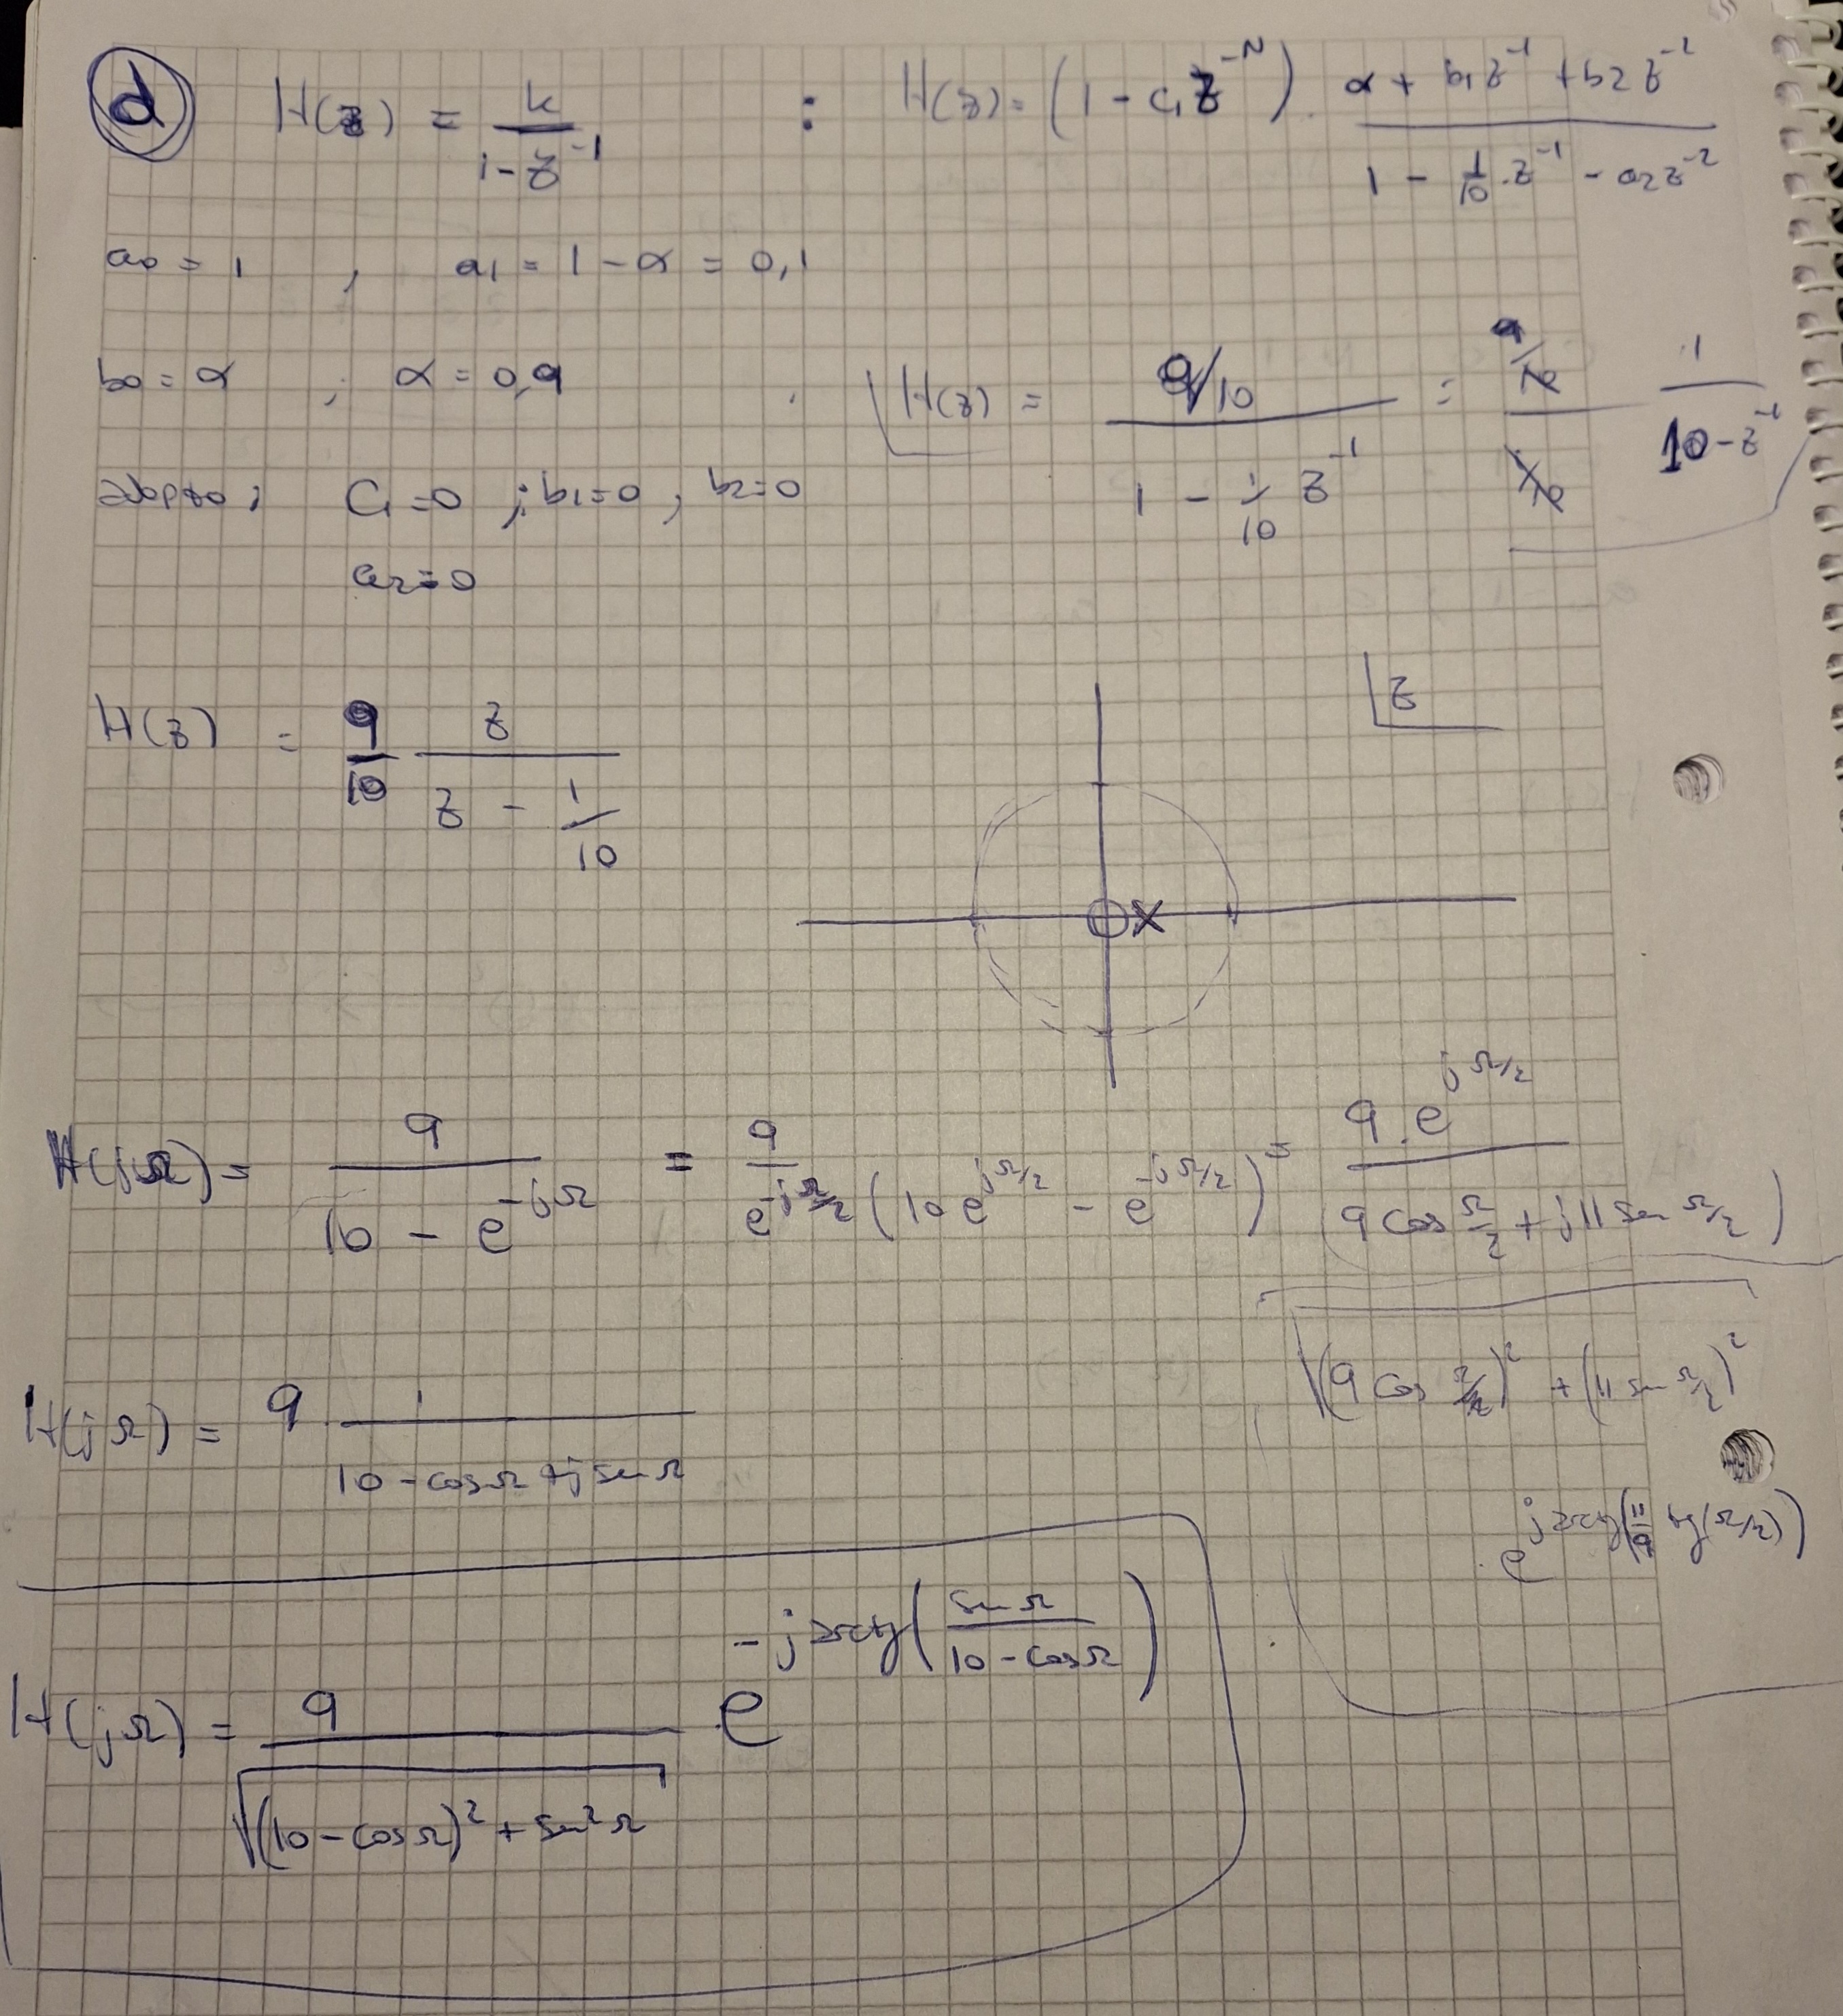 d H(z) = k / (1 - z^-1) : H(z) = (1 - c1 z^-N) . (α + b1 z^-1 + b2 z^-2) / (1 - 1/10 . z^-1 - a2 z^-2)
a0 = 1 , a1 = 1 - α = 0,1
b0 = α ; α = 0,9 . H(z) = (9/10) / (1 - 1/10 z^-1) = (9/10) / (1/10) 1 / (10 - z^-1)
adopto ; C1 = 0 ; b1 = 0 , b2 = 0
a2 = 0
z
H(z) = 9/10 z / (z - 1/10)
H(jΩ) = 9 / (10 - e^-jΩ) = 9 / (e^-jΩ/2 (10 e^jΩ/2 - e^-jΩ/2)) = 9 . e^jΩ/2 / (9 cos Ω/2 + j 11 sen Ω/2)
√((9 cos Ω/2)^2 + (11 sen Ω/2)^2)
. e^j arctg(11/9 tg(Ω/2))
H(jΩ) = 9 . 1 / (10 - cos Ω + j sen Ω)
H(jΩ) = 9 / √((10 - cos Ω)^2 + sen^2 Ω) . e^-j arctg(sen Ω / (10 - cos Ω))